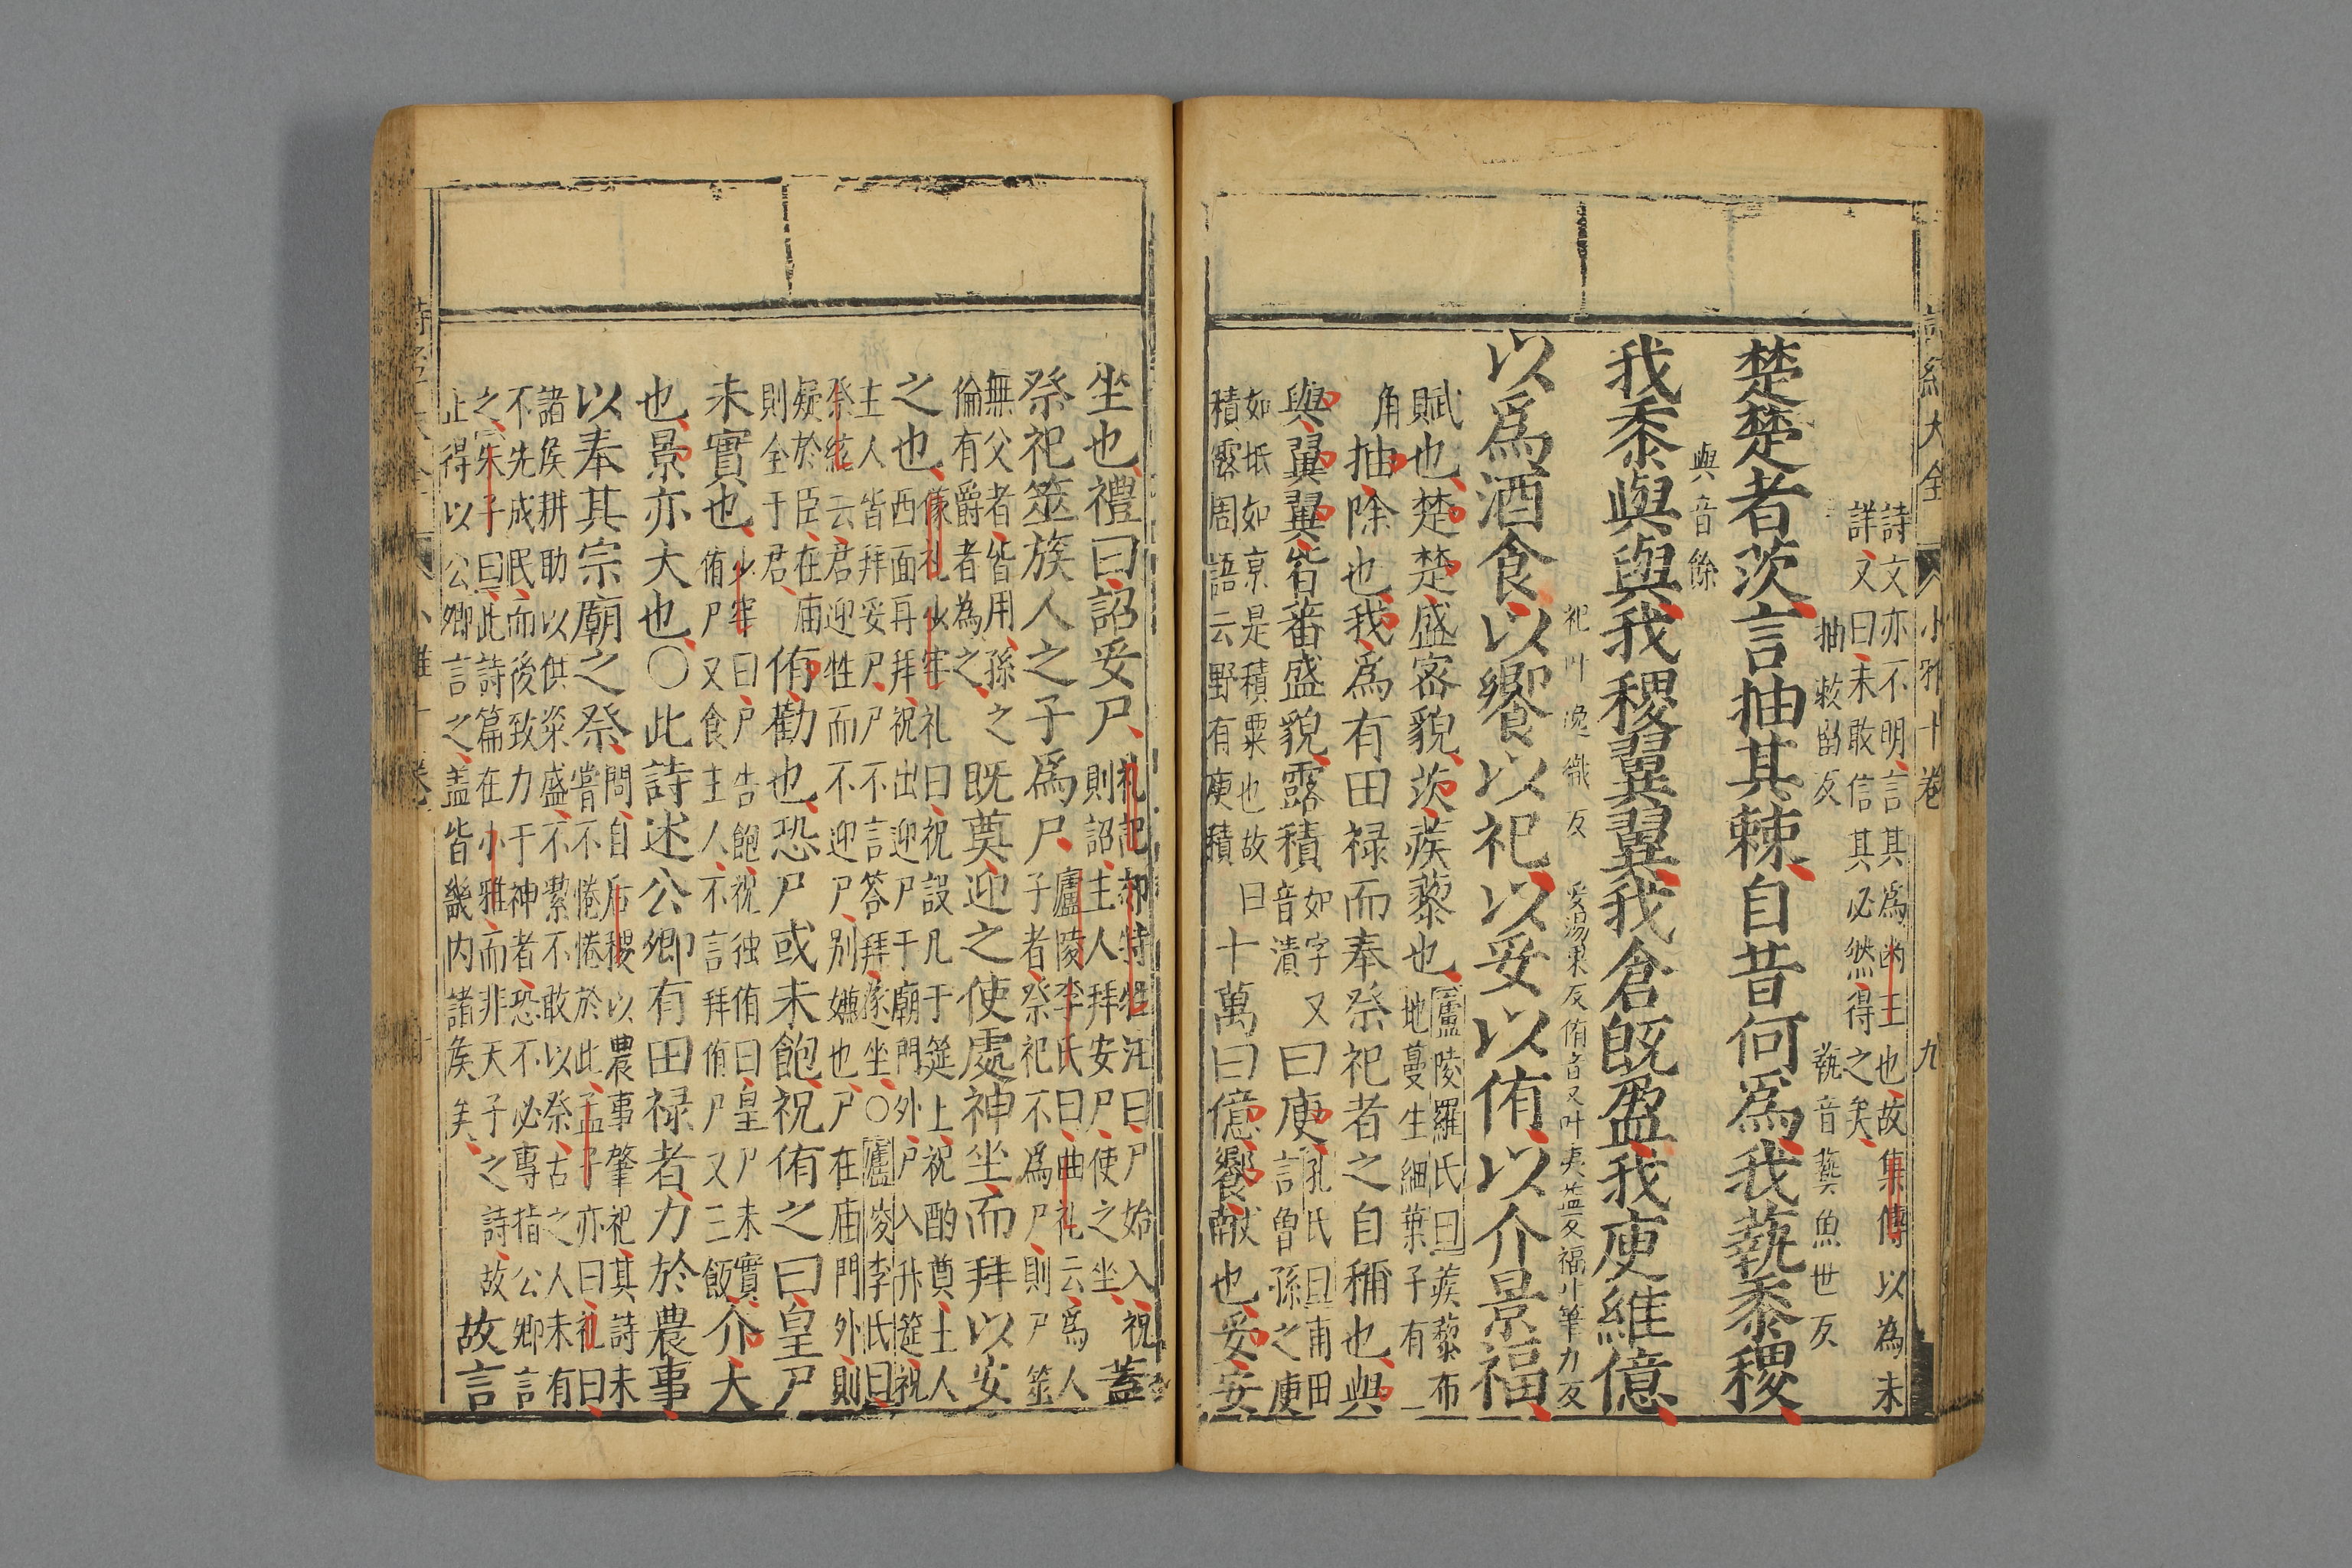 詩經大全 小雅十卷 九
詩文亦不明言其為幽王也故集傳以為未
詳又曰未敢信其必然得之矣
抽敕留反 蓺音藝魚世反
楚楚者茨言抽其棘自昔何爲我蓺黍稷
與音餘
我黍與與我稷翼翼我倉旣盈我庾維億
祀叶逸織反 妥湯果反侑音又叶夷益反福叶筆力反
以爲酒食以饗以祀以妥以侑以介景福
賦也楚楚盛密貌茨蒺藜也
廬陵羅氏曰蒺藜布
地蔓生細葉子有一
角
抽除也我爲有田禄而奉祭祀者之自稱也與
與翼翼皆蕃盛貌露積
如字又
音漬
曰庾
孔氏曰甫田
言曾孫之庾
如坻如京是積粟也故
積露周語云野有庾積
曰
十萬曰億饗献也妥安
坐也禮曰詔妥尸
礼記郊特牲注曰尸始入祝
則詔主人拜安尸使之坐
蓋
祭祀筮族人之子爲尸
廬陵李氏曰曲礼云爲人
子者祭祀不爲尸則尸筮
無父者皆用孫之
倫有爵者為之
既奠迎之使處神坐而拜以安
之也
儀礼少牢礼曰祝設几于筵上祝酌奠主人
西面再拜祝出迎尸于廟門外尸入升筵祝
主人皆拜妥尸尸不言答拜遂坐○廬陵李氏曰
祭統云君迎牲而不迎尸別嫌也尸在庙門外則
疑於臣在庙
則全于君
侑勸也恐尸或未飽祝侑之曰皇尸
未實也
少牢曰尸告飽祝独侑曰皇尸未實
侑尸又食主人不言拜侑尸又三飯
介大
也景亦大也○此詩述公卿有田禄者力於農事
以奉其宗廟之祭
問自后稷以農事肇祀其詩未
嘗不惓惓於此孟子亦曰礼曰
諸矦耕助以供粢盛不潔不敢以祭古之人未有
不先成民而後致力于神者恐不必專指公卿言
之朱子曰此詩篇在小雅而非天子之詩故
止得以公卿言之盖皆畿内諸矦矣
故言